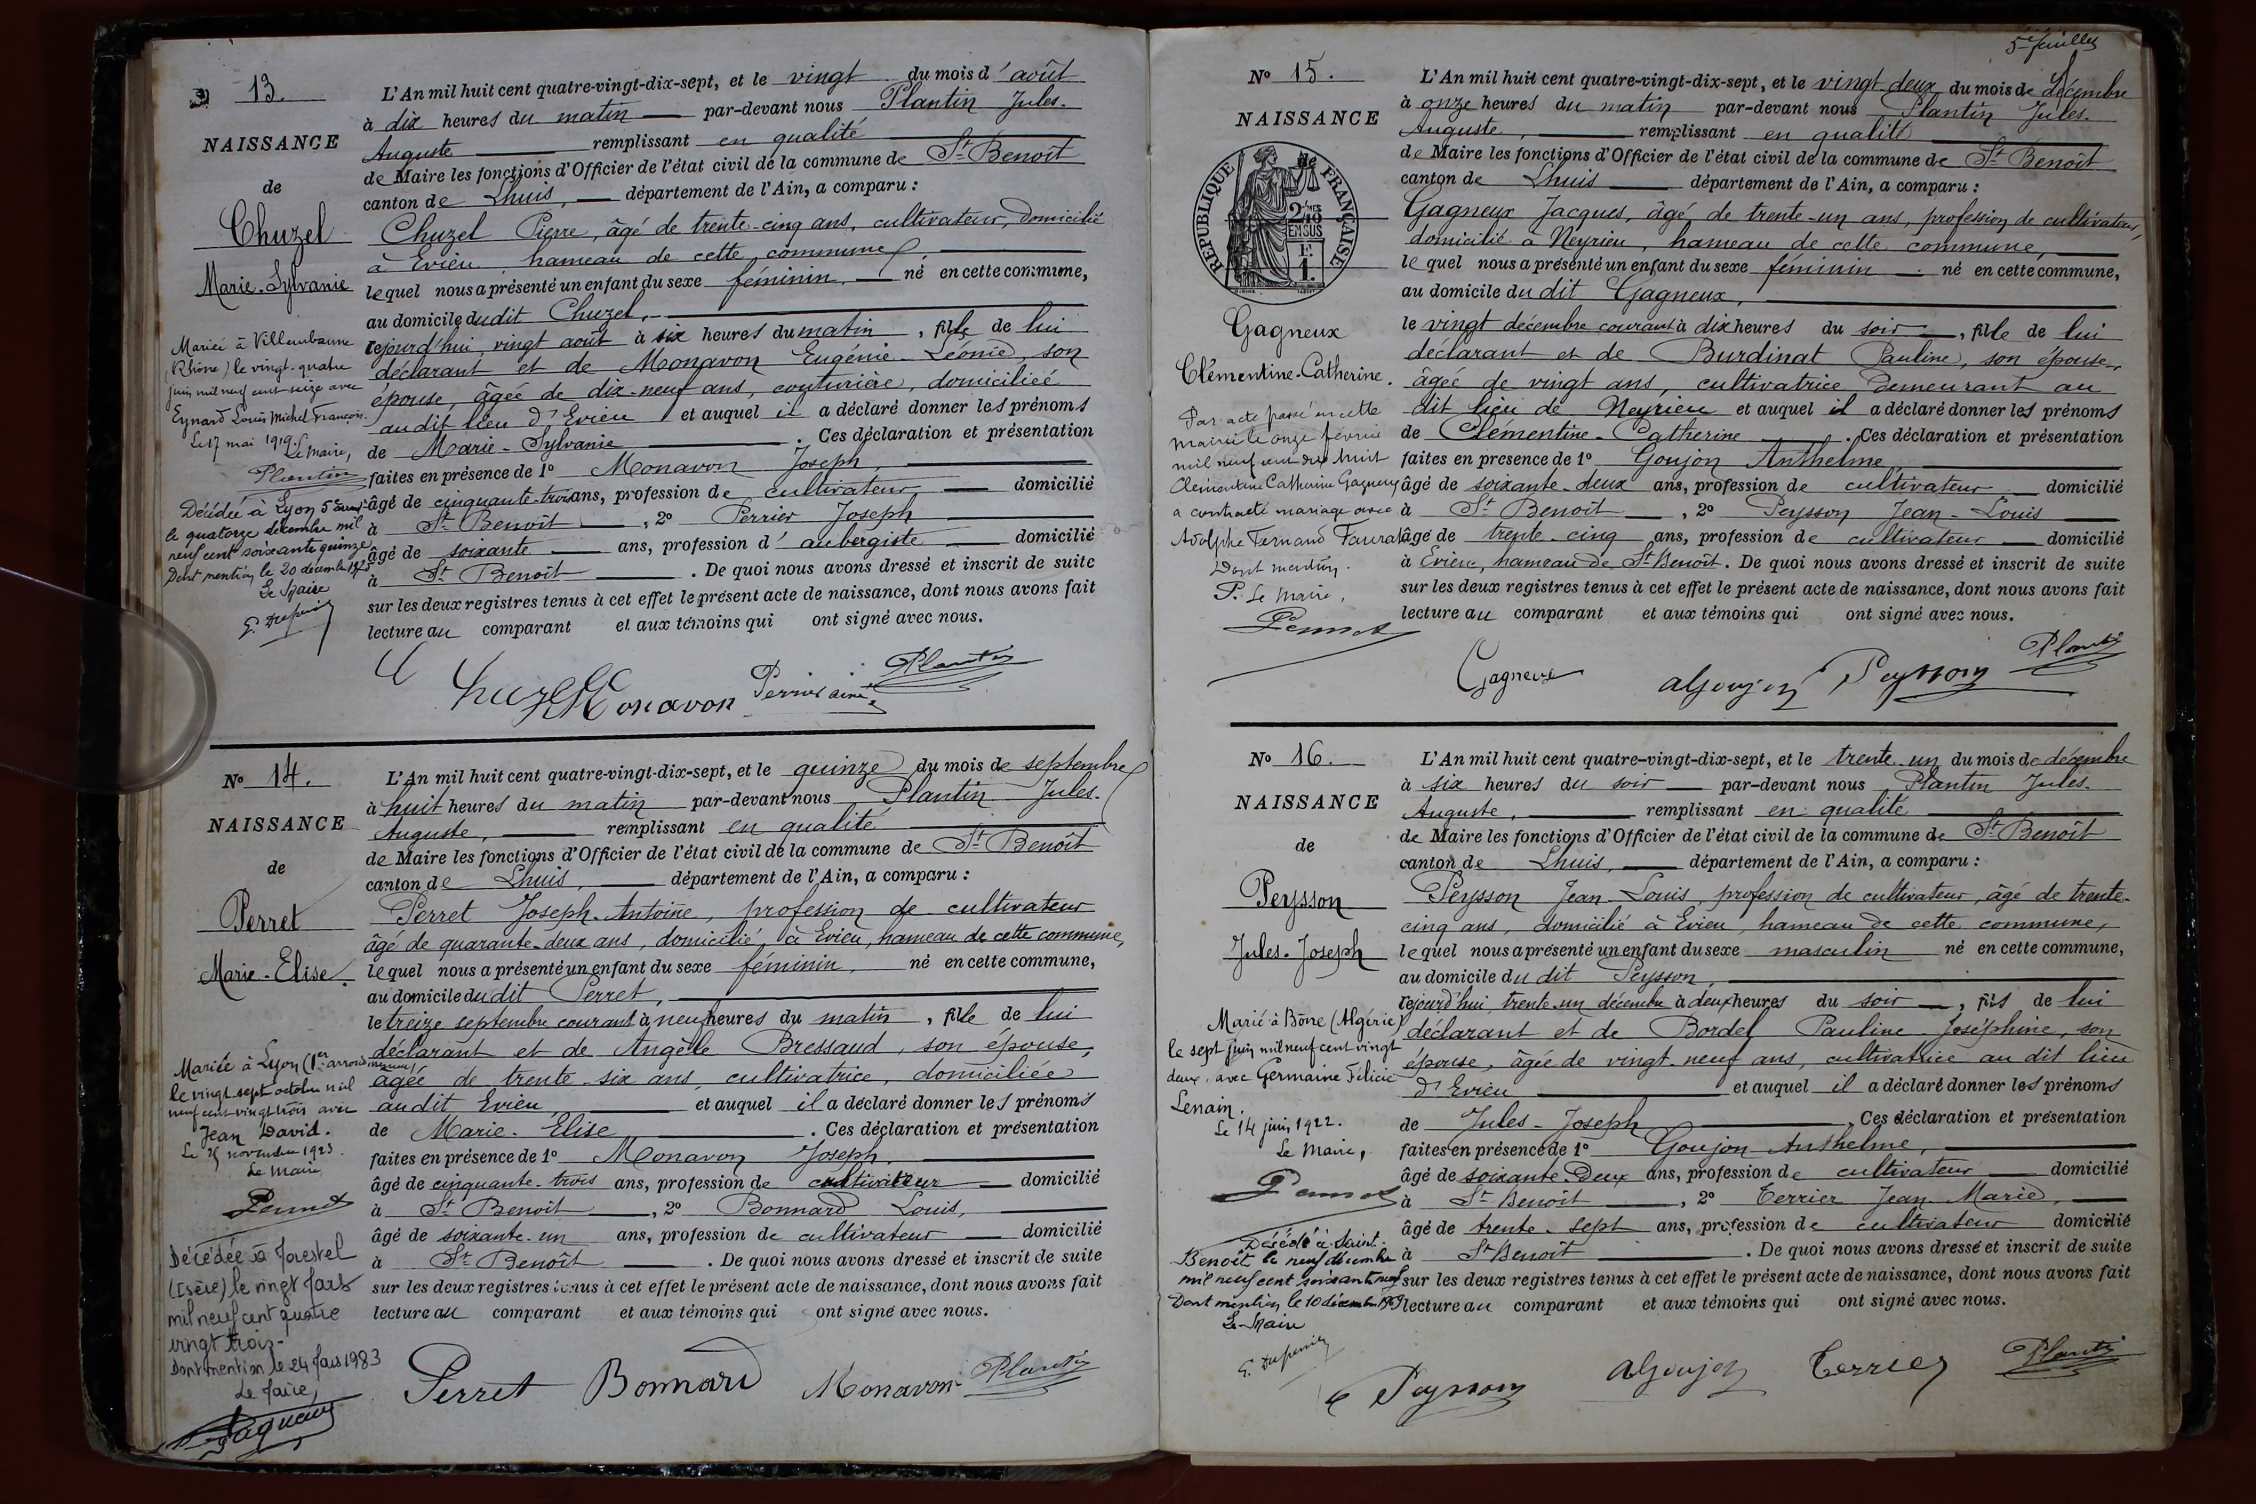 13.
NAISSANCE
de
Chuzel
Marie-Sylvanie
Mariée à Villeurbanne
(Rhône) le vingt-quatre
juin mil neuf cent seize avec
Eynard Louis Michel François.
Le 17 mai 1919.
Le Maire,
Plantin
Décédée à Lyon 5e
le quatorze décembre mil
neuf cent soixante quinze
Dont mention le 20 décembre 1975
Le Maire
L'An mil huit cent quatre-vingt-dix-sept, et le vingt du mois d'août
à dix heures du matin par-devant nous Plantin Jules-
Auguste remplissant en qualité
de Maire les fonctions d'Officier de l'état civil de la commune de St-Benoît
canton de Lhuis, département de l'Ain, a comparu :
Chuzel Pierre, âgé de trente-cinq ans, cultivateur, domicilié
à Evieu hameau de cette commune,
lequel nous a présenté un enfant du sexe féminin, né en cette commune,
au domicile du dit Chuzel,
cejourd'hui vingt août à six heures du matin, fille de lui
déclarant et de Monavon Eugénie-Léonie, son
épouse, âgée de dix-neuf ans, couturière, domiciliée
au dit lieu d'Evieu et auquel il a déclaré donner les prénoms
de Marie-Sylvanie. Ces déclaration et présentation
faites en présence de 1° Monavon Joseph,
âgé de cinquante-trois ans, profession de cultivateur domicilié
à St-Benoît, 2° Perrier Joseph
âgé de soixante ans, profession d'aubergiste domicilié
à St-Benoît. De quoi nous avons dressé et inscrit de suite
sur les deux registres tenus à cet effet le présent acte de naissance, dont nous avons fait
lecture au comparant et aux témoins qui ont signé avec nous.
Chuzel Monavon Perrier ainé Plantin
No 14.
NAISSANCE
de
Perret
Marie-Elise.
Mariée à Lyon (1er arrondissement)
le vingt sept octobre mil
neuf cent vingt trois avec
Jean David.
Le 25 novembre 1923.
Le Maire
Décédée à Morestel
(Isère) le vingt Mars
mil neuf cent quatre
vingt trois-
Dont mention le 24 Mars 1983
Le Maire,
Gagneux
L'An mil huit cent quatre-vingt-dix-sept, et le quinze du mois de septembre
à huit heures du matin par-devant nous Plantin Jules-
Auguste, remplissant en qualité
de Maire les fonctions d'Officier de l'état civil de la commune de St-Benoît
canton de Lhuis, département de l'Ain, a comparu :
Perret Joseph-Antoine, profession de cultivateur
âgé de quarante-deux ans, domicilié, à Evieu, hameau de cette commune,
lequel nous a présenté un enfant du sexe féminin, né en cette commune,
au domicile du dit Perret,
le treize septembre courant à neuf heures du matin, fille de lui
déclarant et de Angèle Bressaud, son épouse,
âgée de trente-six ans, cultivatrice, domiciliée
au dit Evieu, et auquel il a déclaré donner les prénoms
de Marie-Elise. Ces déclaration et présentation
faites en présence de 1° Monavon Joseph,
âgé de cinquante-trois ans, profession de cultivateur domicilié
à St-Benoît, 2° Bonnard Louis,
âgé de soixante-un ans, profession de cultivateur domicilié
à St-Benoît. De quoi nous avons dressé et inscrit de suite
sur les deux registres tenus à cet effet le présent acte de naissance, dont nous avons fait
lecture au comparant et aux témoins qui ont signé avec nous.
Perret Bonnard Monavon Plantin
5e feuillet
No 15.
NAISSANCE
de
RÉPUBLIQUE FRANÇAISE
2/10 EN SUS
F. 1
Gagneux
Clémentine-Catherine.
Par acte passé en cette
mairie le onze février
mil neuf cent dix huit
Clémentine Catherine Gagneux
a contracté mariage avec
Adolphe Fernand Faurat
Dont mention.
P. Le Maire,
L'An mil huit cent quatre-vingt-dix-sept, et le vingt-deux du mois de décembre
à onze heures du matin par-devant nous Plantin Jules-
Auguste, remplissant en qualité
de Maire les fonctions d'Officier de l'état civil de la commune de St-Benoît
canton de Lhuis département de l'Ain, a comparu :
Gagneux Jacques, âgé de trente-un ans, profession de cultivateur,
domicilié à Neyrieu, hameau de cette commune,
lequel nous a présenté un enfant du sexe féminin né en cette commune,
au domicile du dit Gagneux,
le vingt décembre courant à dix heures du soir, fille de lui
déclarant et de Burdinat Pauline, son épouse,
âgée de vingt ans, cultivatrice demeurant au
dit lieu de Neyrieu et auquel il a déclaré donner les prénoms
de Clémentine-Catherine. Ces déclaration et présentation
faites en présence de 1° Goujon Anthelme,
âgé de soixante-deux ans, profession de cultivateur domicilié
à St-Benoît, 2° Peysson Jean-Louis
âgé de trente-cinq ans, profession de cultivateur domicilié
à Evieu, hameau de St-Benoît. De quoi nous avons dressé et inscrit de suite
sur les deux registres tenus à cet effet le présent acte de naissance, dont nous avons fait
lecture au comparant et aux témoins qui ont signé avec nous.
Gagneux A Goujon Peysson Plantin
No 16.
NAISSANCE
de
Peysson
Jules-Joseph
Marié à Bône (Algérie)
le sept juin mil neuf cent vingt
deux, avec Germaine Félicie
Lenain.
Le 14 juin 1922.
Le Maire,
Décédé à Saint-
Benoît le neuf décembre
mil neuf cent soixante neuf
Dont mention le 10 décembre 1969
Le Maire
L'An mil huit cent quatre-vingt-dix-sept, et le trente-un du mois de décembre
à six heures du soir par-devant nous Plantin Jules-
Auguste, remplissant en qualité
de Maire les fonctions d'Officier de l'état civil de la commune de St-Benoît
canton de Lhuis, département de l'Ain, a comparu :
Peysson Jean-Louis, profession de cultivateur, âgé de trente-
cinq ans, domicilié à Evieu, hameau de cette commune,
lequel nous a présenté un enfant du sexe masculin né en cette commune,
au domicile du dit Peysson,
cejourd'hui trente-un décembre à deux heures du soir, fils de lui
déclarant et de Bordel Pauline-Joséphine, son
épouse, âgée de vingt-neuf ans, cultivatrice au dit lieu
d'Evieu et auquel il a déclaré donner les prénoms
de Jules-Joseph. Ces déclaration et présentation
faites en présence de 1° Goujon Anthelme,
âgé de soixante-deux ans, profession de cultivateur domicilié
à St-Benoît, 2° Terrier Jean-Marie,
âgé de trente-sept ans, profession de cultivateur domicilié
à St-Benoît. De quoi nous avons dressé et inscrit de suite
sur les deux registres tenus à cet effet le présent acte de naissance, dont nous avons fait
lecture au comparant et aux témoins qui ont signé avec nous.
Peysson A Goujon Terrier Plantin